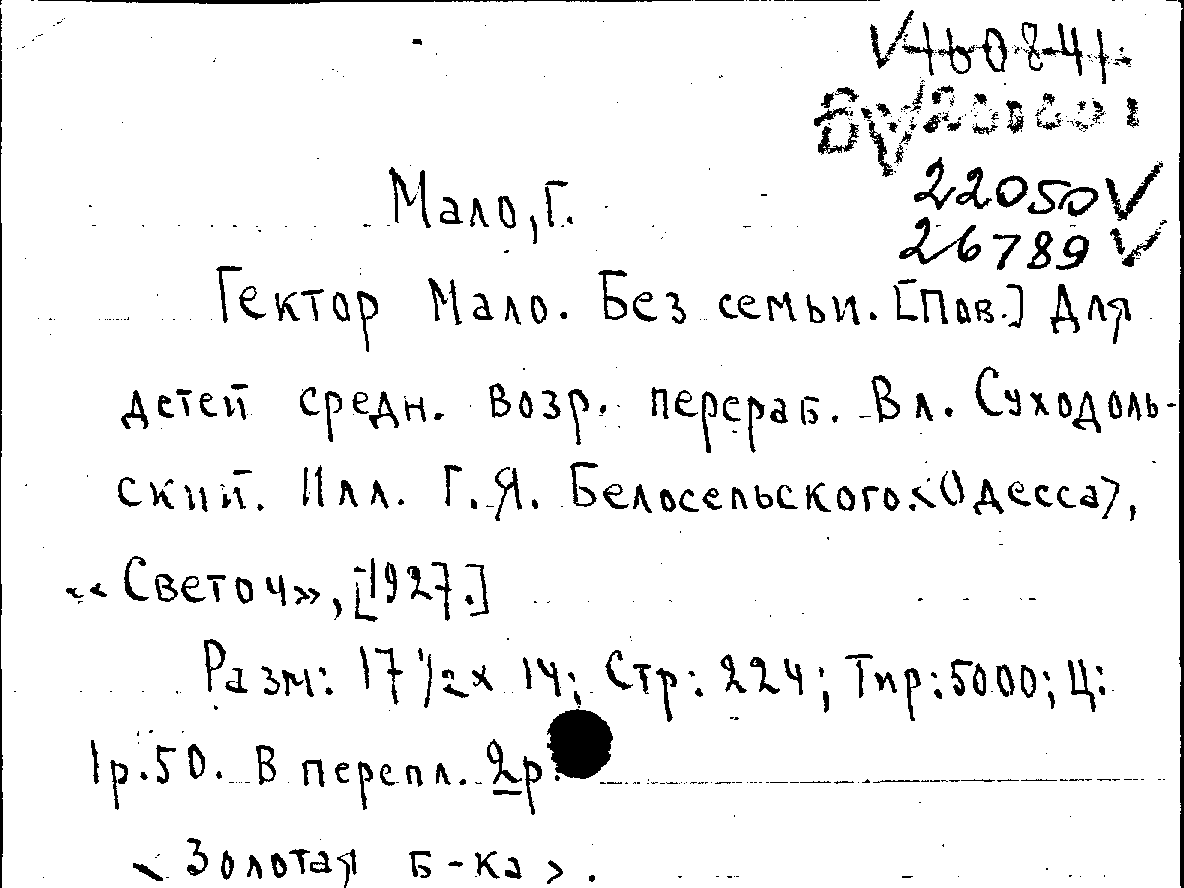 V160841
22050V
26789V
Мало, Г.
Гектор Мало. Без семьи. [Пов.] Для
детей средн. возр. перераб. Вл. Суходоль-
ский. Илл. Г.Я. Белосельского.<Одесса>,
«Светоч», [1927.]
Разм: 17 1/2 x 14; Стр: 224; Тир: 5000; Ц:
1р.50. В перепл. 2р.
<Золотая б-ка>.